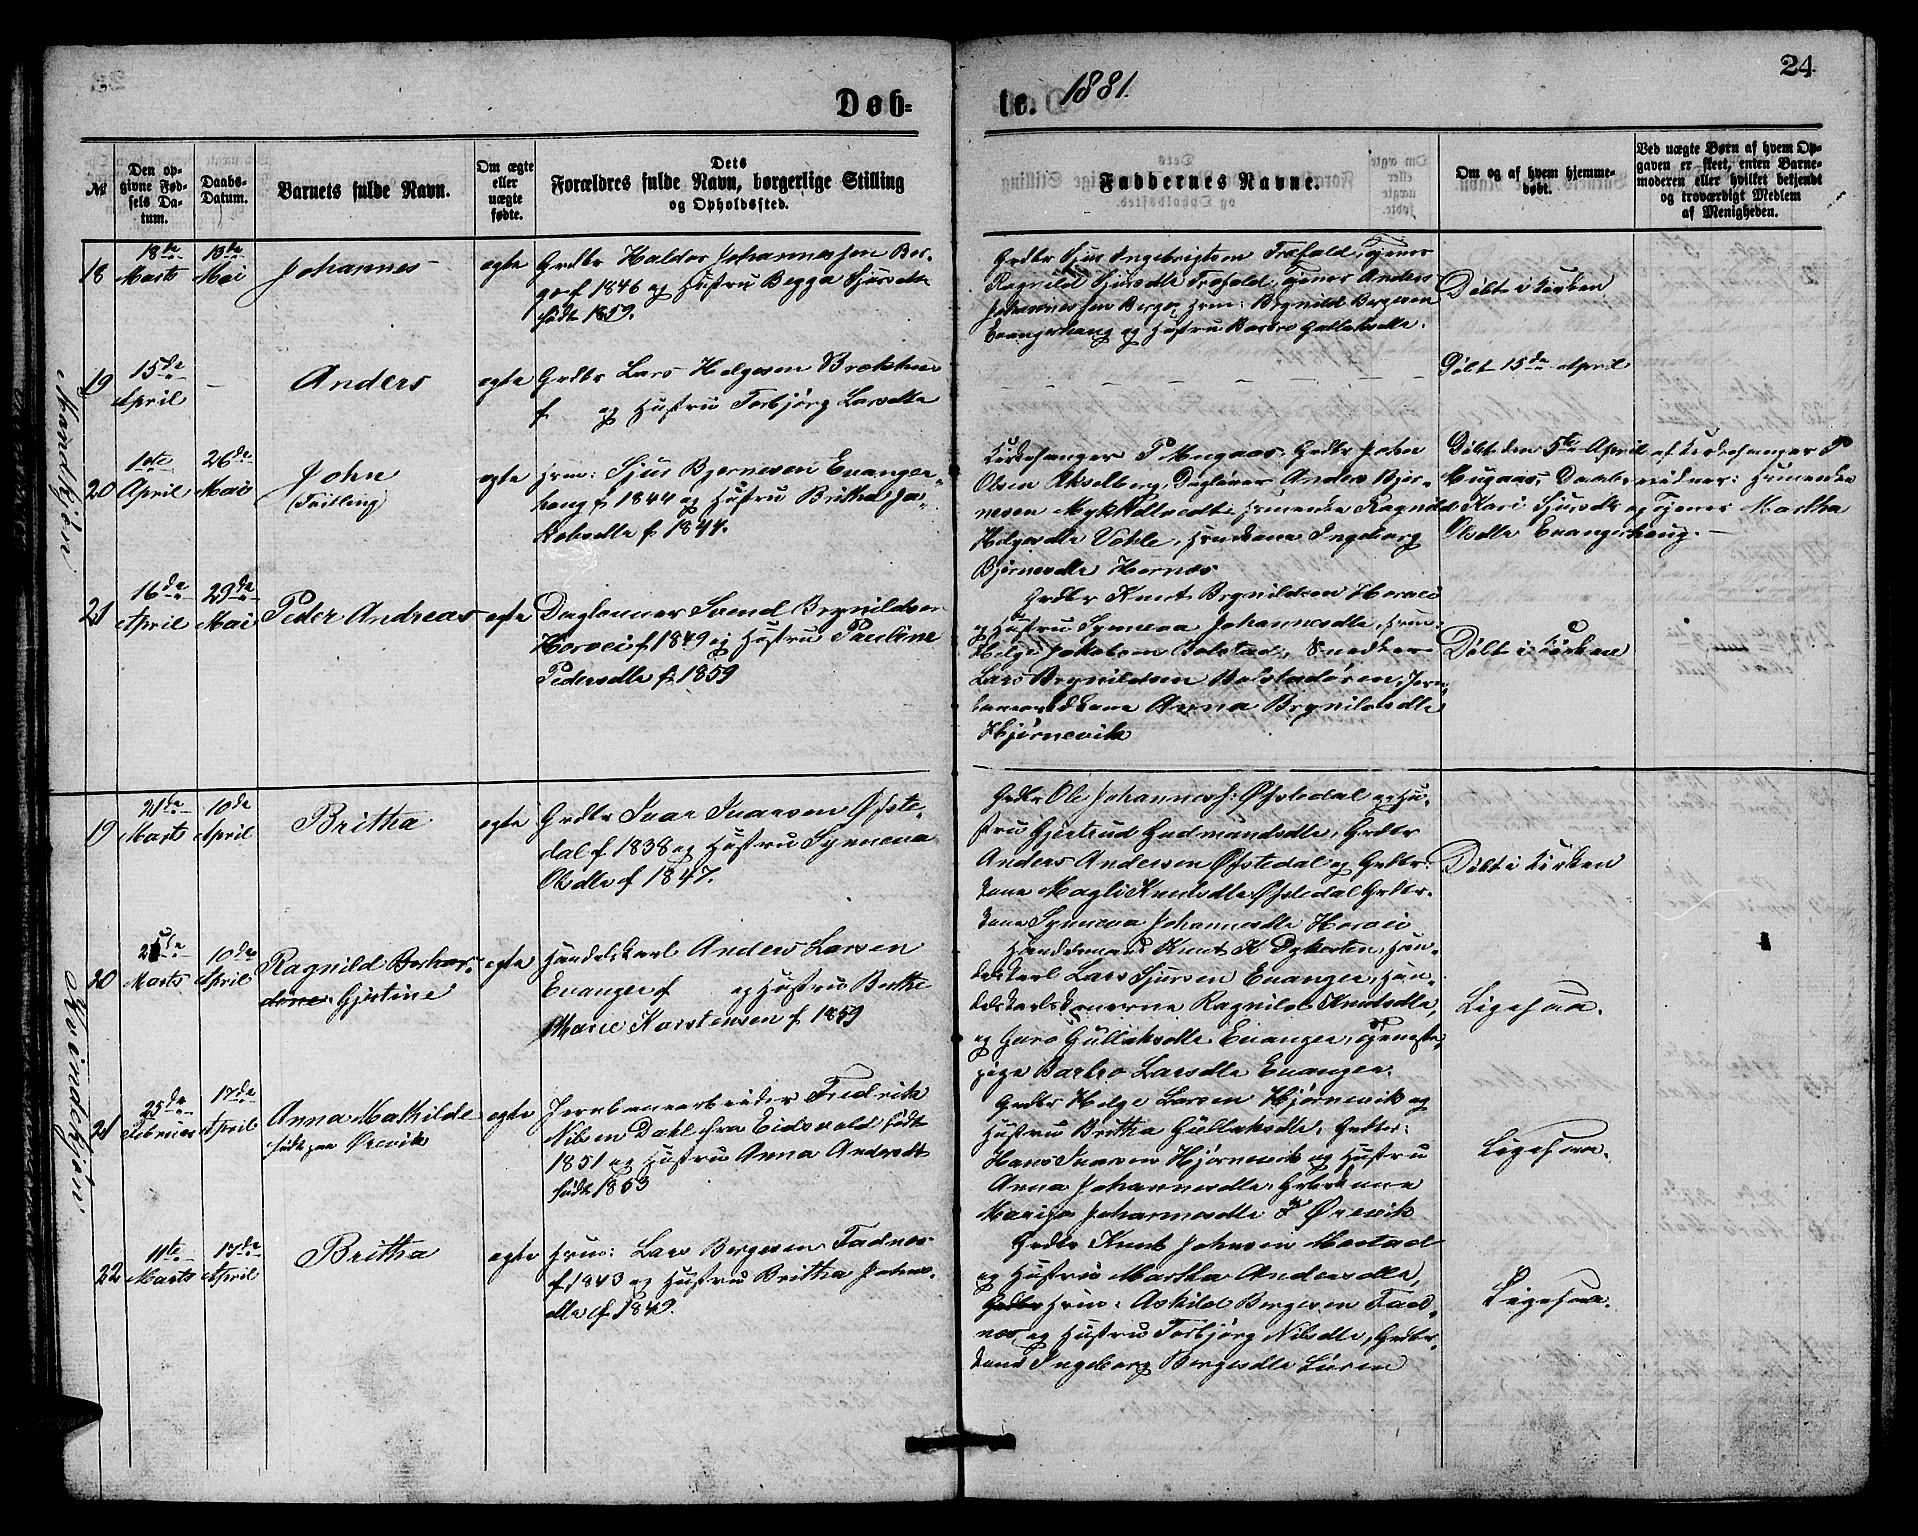 24
Døb=
te. 1881.
№
Den op-
givne Fød-
sels Da-
tum.
Daabs-
Datum.
Barnets fulde Navn.
Om ægte
eller
uægte
fødte.
Dets
Forældres fulde Navn, borgerlige Stilling
og Opholdssted.
Faddernes Navne.
Om og af hvem hjemme-
døbt.
Ved uægte Børn af hvem Op-
gaven er skeet, enten Barne-
moderen eller hvilket bekjendt
og troværdigt Medlem
af Menigheden.
Mandkjøn
18
18de
Marts
Mai
Johannes
egte
Grdbr Haldor Johannessen Ber-
ge f 1846 og Hustru Begga Sjursdtr
født 1859.
Grdbr Sjur Ingebrigtsen Træfald, Tjener
Ragnild Sjursdtr Træfald, Tjener Anders
Johannessen Berge, Hrm: Brynild Bergesen
Evangerhaug og Hustru Barbro Gullaksdtr.
Døbt i Kirken
19
15de
April
Anders
egte
Grdbr Lars Helgesen Brækhus
f og Hustru Torbjørg Larsdtr
Døbt 15de April
20
1ste
April
26de
Mai
John
(Tvilling)
egte
Hrm: Sjur Bjørnesen Evanger-
haug f 1844 og Hustru Britha Ja-
kobsdtr f 1844.
Kirkesanger P Mugaas, Grdbr John
Olsen Akselberg, Daglønner Anders Bjør-
nesen Mykkeltvedt, Hrmenke Ragnild
Helgesdtr Vohle, Hrmkone Ingeborg
Bjørnesdtr Hornes
Døbt den 5te April af Kirkesanger P
Mugaas, Daabsvidner: Hrmenke
Kari Sjursdtr og Tjener Martha
Olsdtr Evangerhaug.
21
16de
April
29de
Mai
Peder Andreas
egte
Daglønner Svend Brynildsen
Horvei f 1849 og Hustru Pauline
Pedersdtr f 1859
Grdbr Knut Brynildsen Horvei
og Hustru Synneva Johannesdtr, Hrm:
Helge Jakobsen Bolstad, Snedker
Lars Brynildsen Bolstadøren, Jern-
banearbkone Anna Brynildsdtr
Hjørnevik
Døbt i Kirken
Kvindekjøn
19
21de
Marts
10de
April
Britha
egte
Grdbr Ivar Ivarsen Øfste-
dal f 1838 og Hustru Synneva
Olsdtr f 1847.
Grdbr Ole Johannes: Øfstedal og Hu-
stru Gjertrud Gudmundsdtr, Grdbr
Anders Andersen Øfstedal og Grdbr-
kone Magli Knutsdtr Øfstedal Grdbr-
kone Synneva Johannesdtr Horvei
Døbt i Kirken
20
Marts
10de
April
Ragnild Berhar-
dine Gjertine
egte
Handelskarl Anders Larsen
Evanger f og Hustru Berthe
Marie Karstensen f 1859
Handelsmand Knut K Dykesten, Han-
delskarl Lars Sjursen Evanger, Han-
delskarlskonerne Ragnild Knutsdtr,
og Guro Gullaksdtr Evanger, Tjeneste-
pige Barbro Larsdtr Evanger.
Ligesaa.
21
25de
Februar
17de
April
Anna Mathilde
født paa Ørevik
egte
Jernbanearbeider Fredrik
Nilsen Dahl fra Eidsvold født
1851 og Hustru Anna Andrsdtr
født 1853
Grdbr Helge Larsen Hjørnevik og
Hustru Britha Gullaksdtr, Grdbr:
Hans Ivarsen Hjørnevik og Hustru
Anna Johannesdtr, Grbrkone
Marija Johannesdtr Ørevik
Ligesaa.
22
11te
Marts
17de
April
Britha
egte
Hrm: Lars Bergesen Fadnes
f 1843 og Hustru Britha Johns-
dtr f 1849.
Grdbr Knut Johnsen Mestad
og Hustru Martha Andersdtr,
Grdbr Hrm: Askild Bergesen Fad-
nes, og Hustru Torbjørg Nilsdtr, Grdbr-
kone Ingeborg Bergesdtr Liren
Ligesaa.